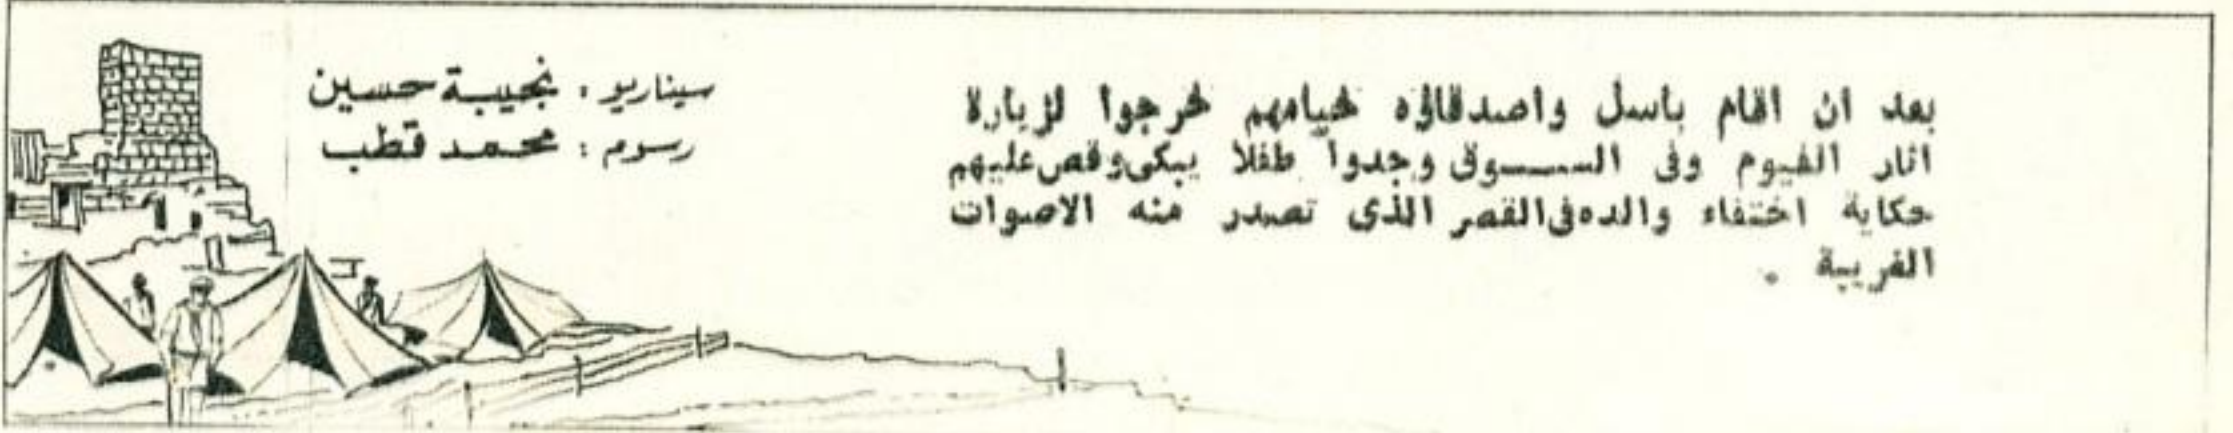 بعد ان اقام باسل واصدقاؤه خيامهم خرجوا لزيارة
اثار الفيوم وفى الســـوق وجدوا طفلا يبكى وقص عليهم
حكاية اختفاء والده فى القصر الذى تصدر منه الاصوات
الغريبة .
سيناريو : نجيبة حسين
رسوم : محمد قطب